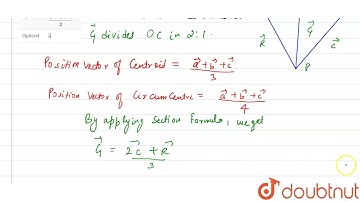 2
Option4
G⃗ divides OC in 2:1.
Position vector of Centroid = a⃗+b⃗+c⃗ / 3
Position vector of Circumcentre = a⃗+b⃗+c⃗ / 4
By applying Section Formula, we get
G⃗ = 2c⃗ + R⃗ / 3
R⃗
G⃗
c⃗
P
doubtnut